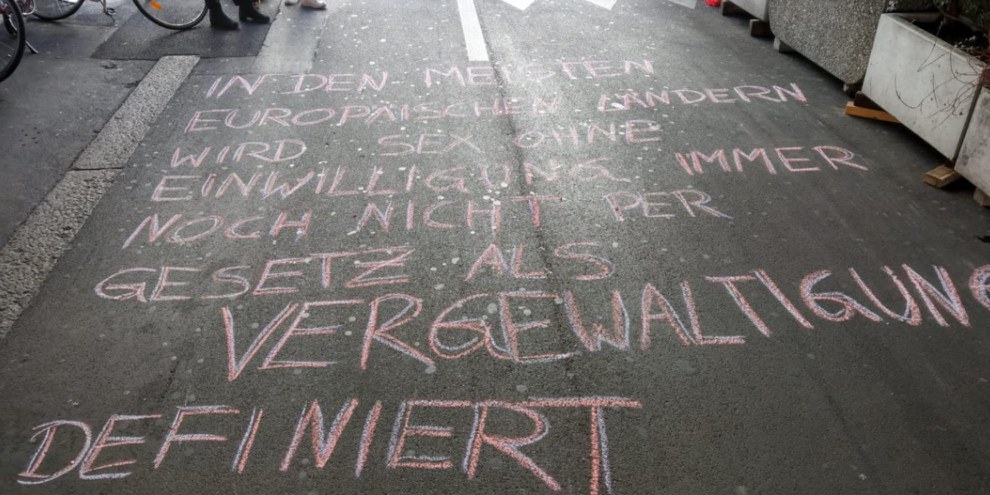 IN DEN MEISTEN
EUROPÄISCHEN LÄNDERN
WIRD SEX OHNE
EINWILLIGUNG IMMER
NOCH NICHT PER
GESETZ ALS
VERGEWALTIGUNG
DEFINIERT